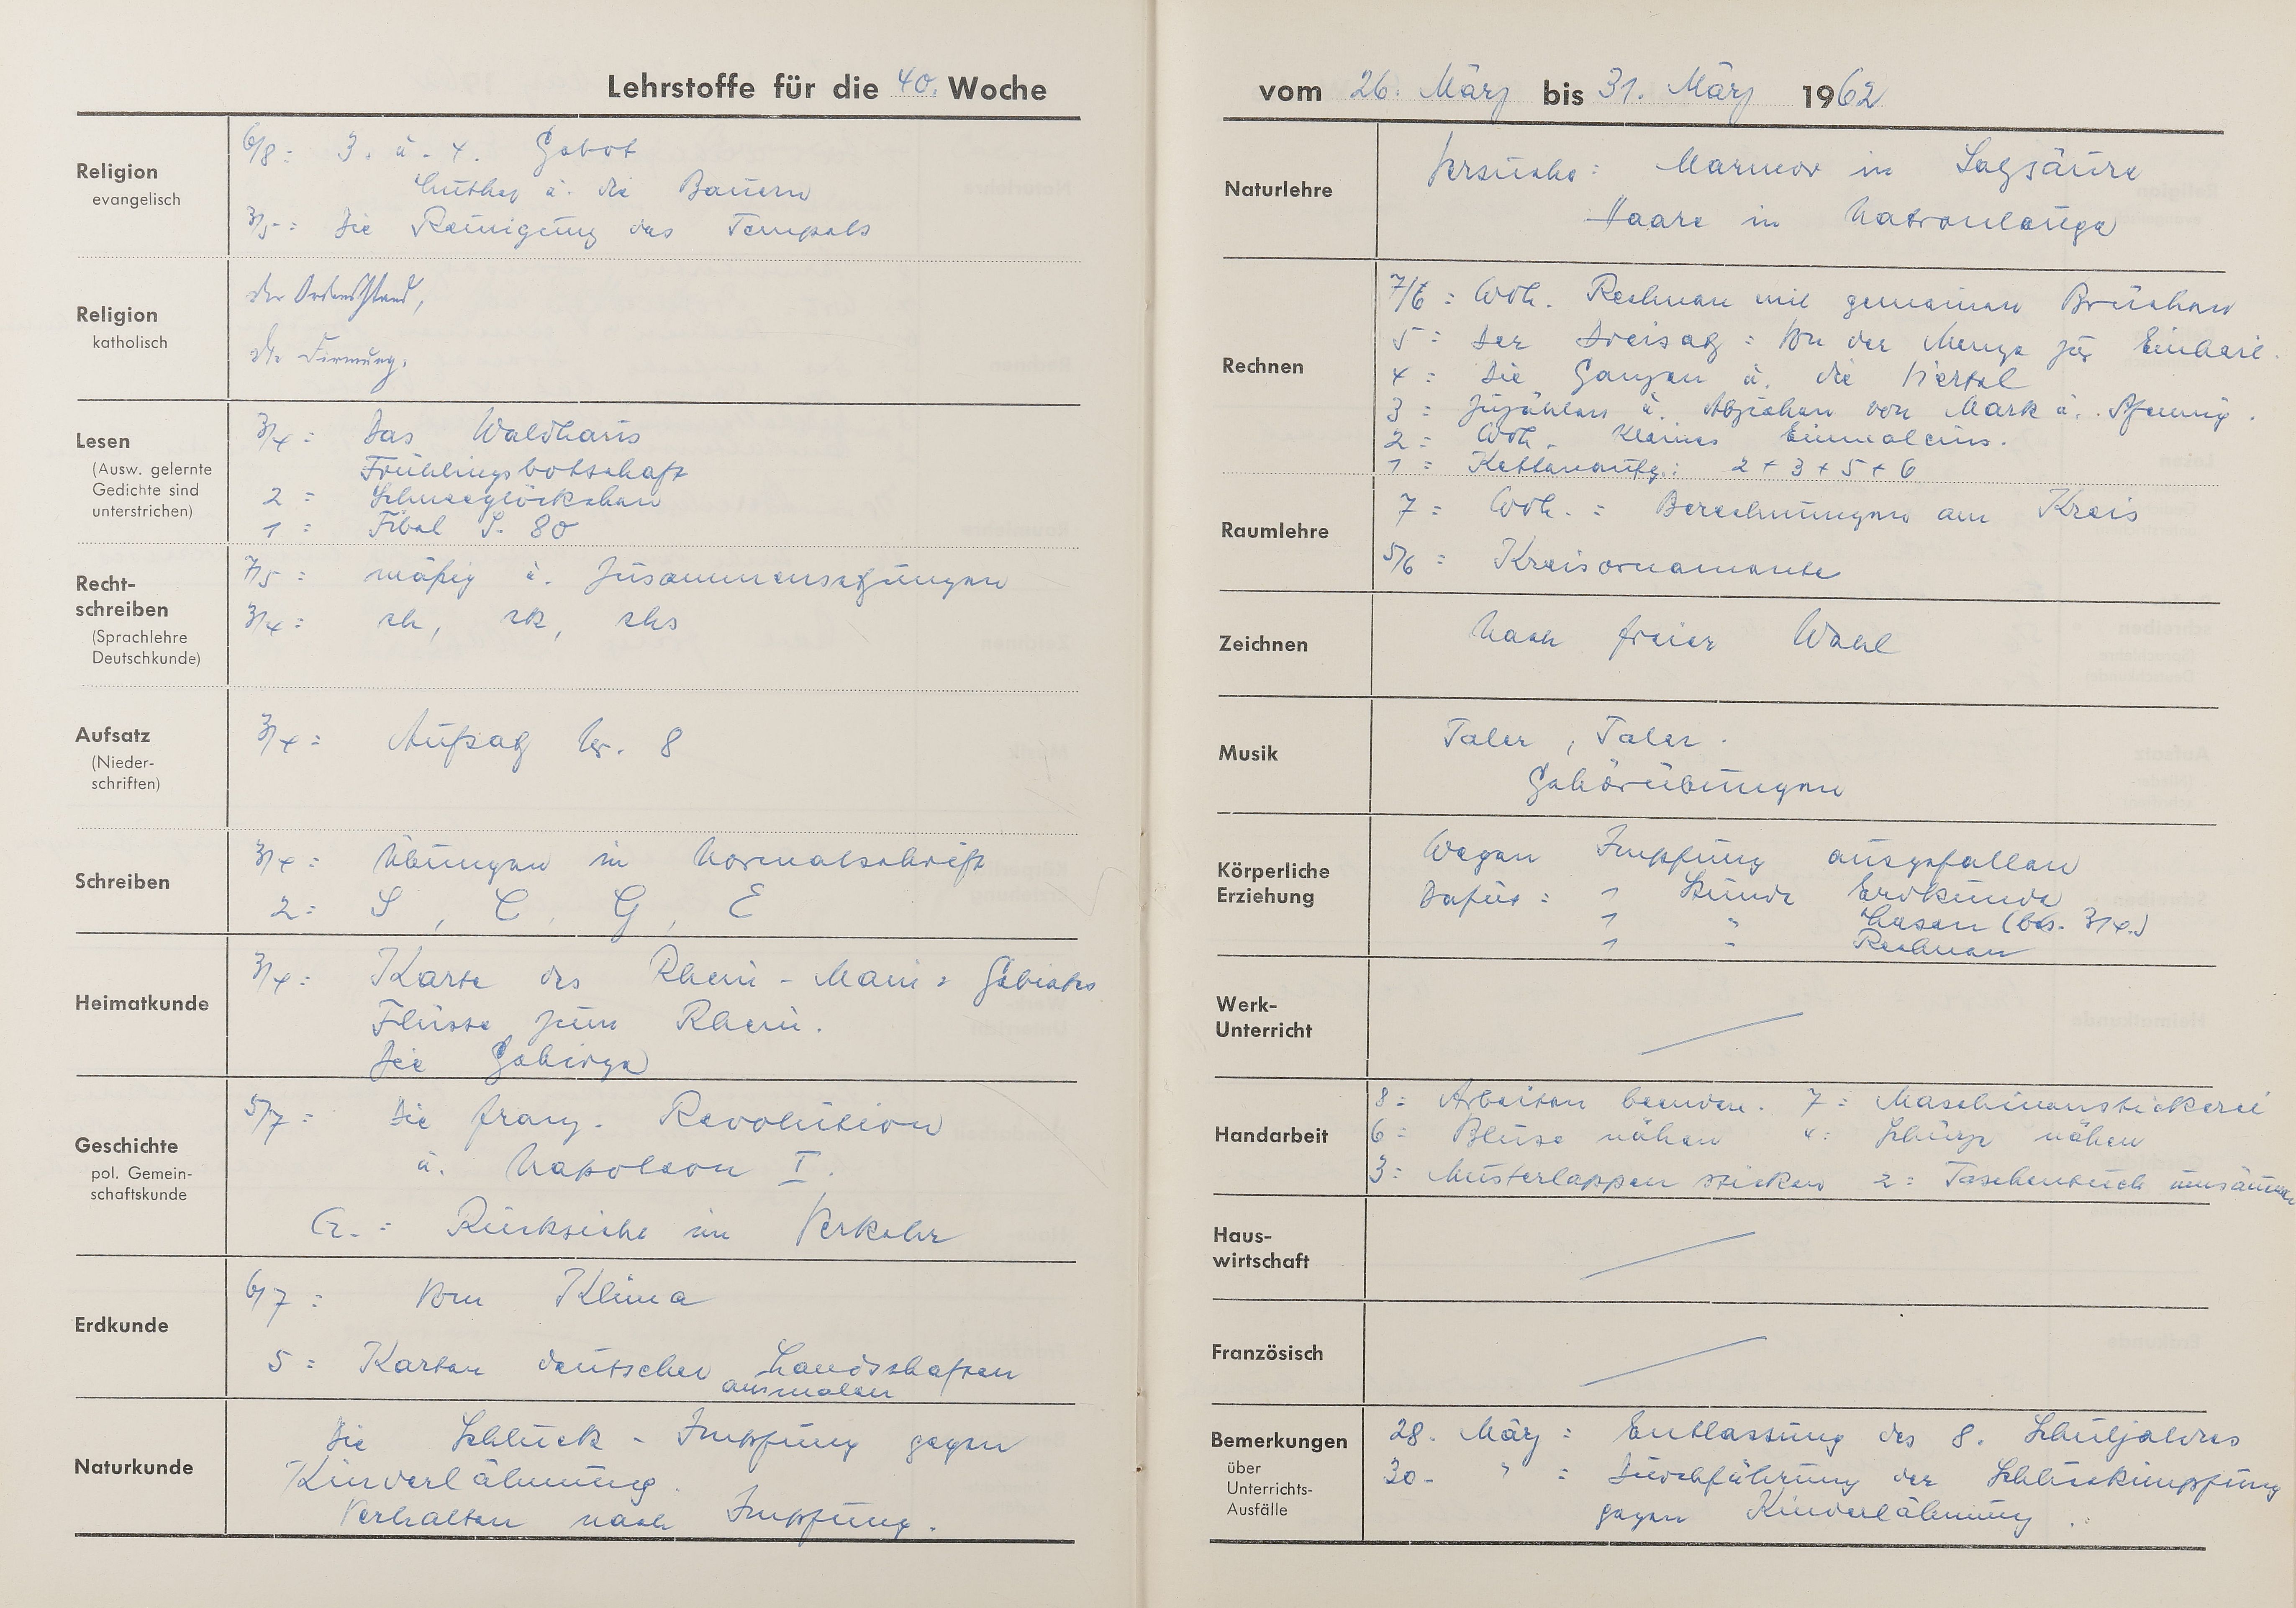 Lehrstoffe für die 40. Woche
Religion
evangelisch
6/8: 3. u. 4. Gebot
Luther u. die Bauern
3/5: Die Reinigung des Tempels
Religion
katholisch
Der Ordensstand,
die Firmung.
Lesen
(Ausw. gelernte
Gedichte sind
unterstrichen)
3/4: Das Waldhaus
Frühlingsbotschaft
2: Schneeglöckchen
1: Fibel S. 80
Recht-
schreiben
(Sprachlehre
Deutschkunde)
7/5: mäßig u. Zusammensetzungen
3/4: ch, ck, chs
Aufsatz
(Nieder-
schriften)
3/4: Aufsatz Nr. 8
Schreiben
3/4: Übungen in Normalschrift
2: S, C, G, E
Heimatkunde
3/4: Karte des Rhein-Main-Gebietes
Flüsse zum Rhein.
Die Gebirge
Geschichte
pol. Gemein-
schaftskunde
5/7: Die franz. Revolution
u. Napoleon I.
G.: Rücksicht im Verkehr
Erdkunde
6/7: Vom Klima
5: Karten deutscher Landschaften
ausmalen
Naturkunde
Die Schluck-Impfung gegen
Kinderlähmung.
Verhalten nach Impfung.
vom 26. März bis 31. März 1962
Naturlehre
Versuche: Marmor in Salzsäure
Haare in Natronlauge
Rechnen
7/6: Wdh. Rechnen mit gemeinen Brüchen
5: Der Dreisatz: Von der Menge zur Einheit.
4: Die Ganzen u. die Viertel
3: Zuzählen u. Abziehen von Mark u. Pfennig.
2: Wdh. Kleines Einmaleins.
1: Kettenaufg.: 2+3+5+6
Raumlehre
7: Wdh.: Berechnungen am Kreis
5/6: Kreisornamente
Zeichnen
Nach freier Wahl
Musik
Taler, Taler.
Gehörübungen
Körperliche
Erziehung
Wegen Impfung ausgefallen
Dafür: 1 Stunde Erdkunde
1 " Lesen (bes. 3/4.)
1 " Rechnen
Werk-
Unterricht
Handarbeit
8: Arbeiten beenden. 7: Maschinenstickerei
6: Bluse nähen 4: Schürze nähen
3: Musterlappen sticken 2: Taschentuch umsäumen
Haus-
wirtschaft
Französisch
Bemerkungen
über
Unterrichts-
Ausfälle
28. März: Entlassung des 8. Schuljahres
30. " : Durchführung der Schluckimpfung
gegen Kinderlähmung.